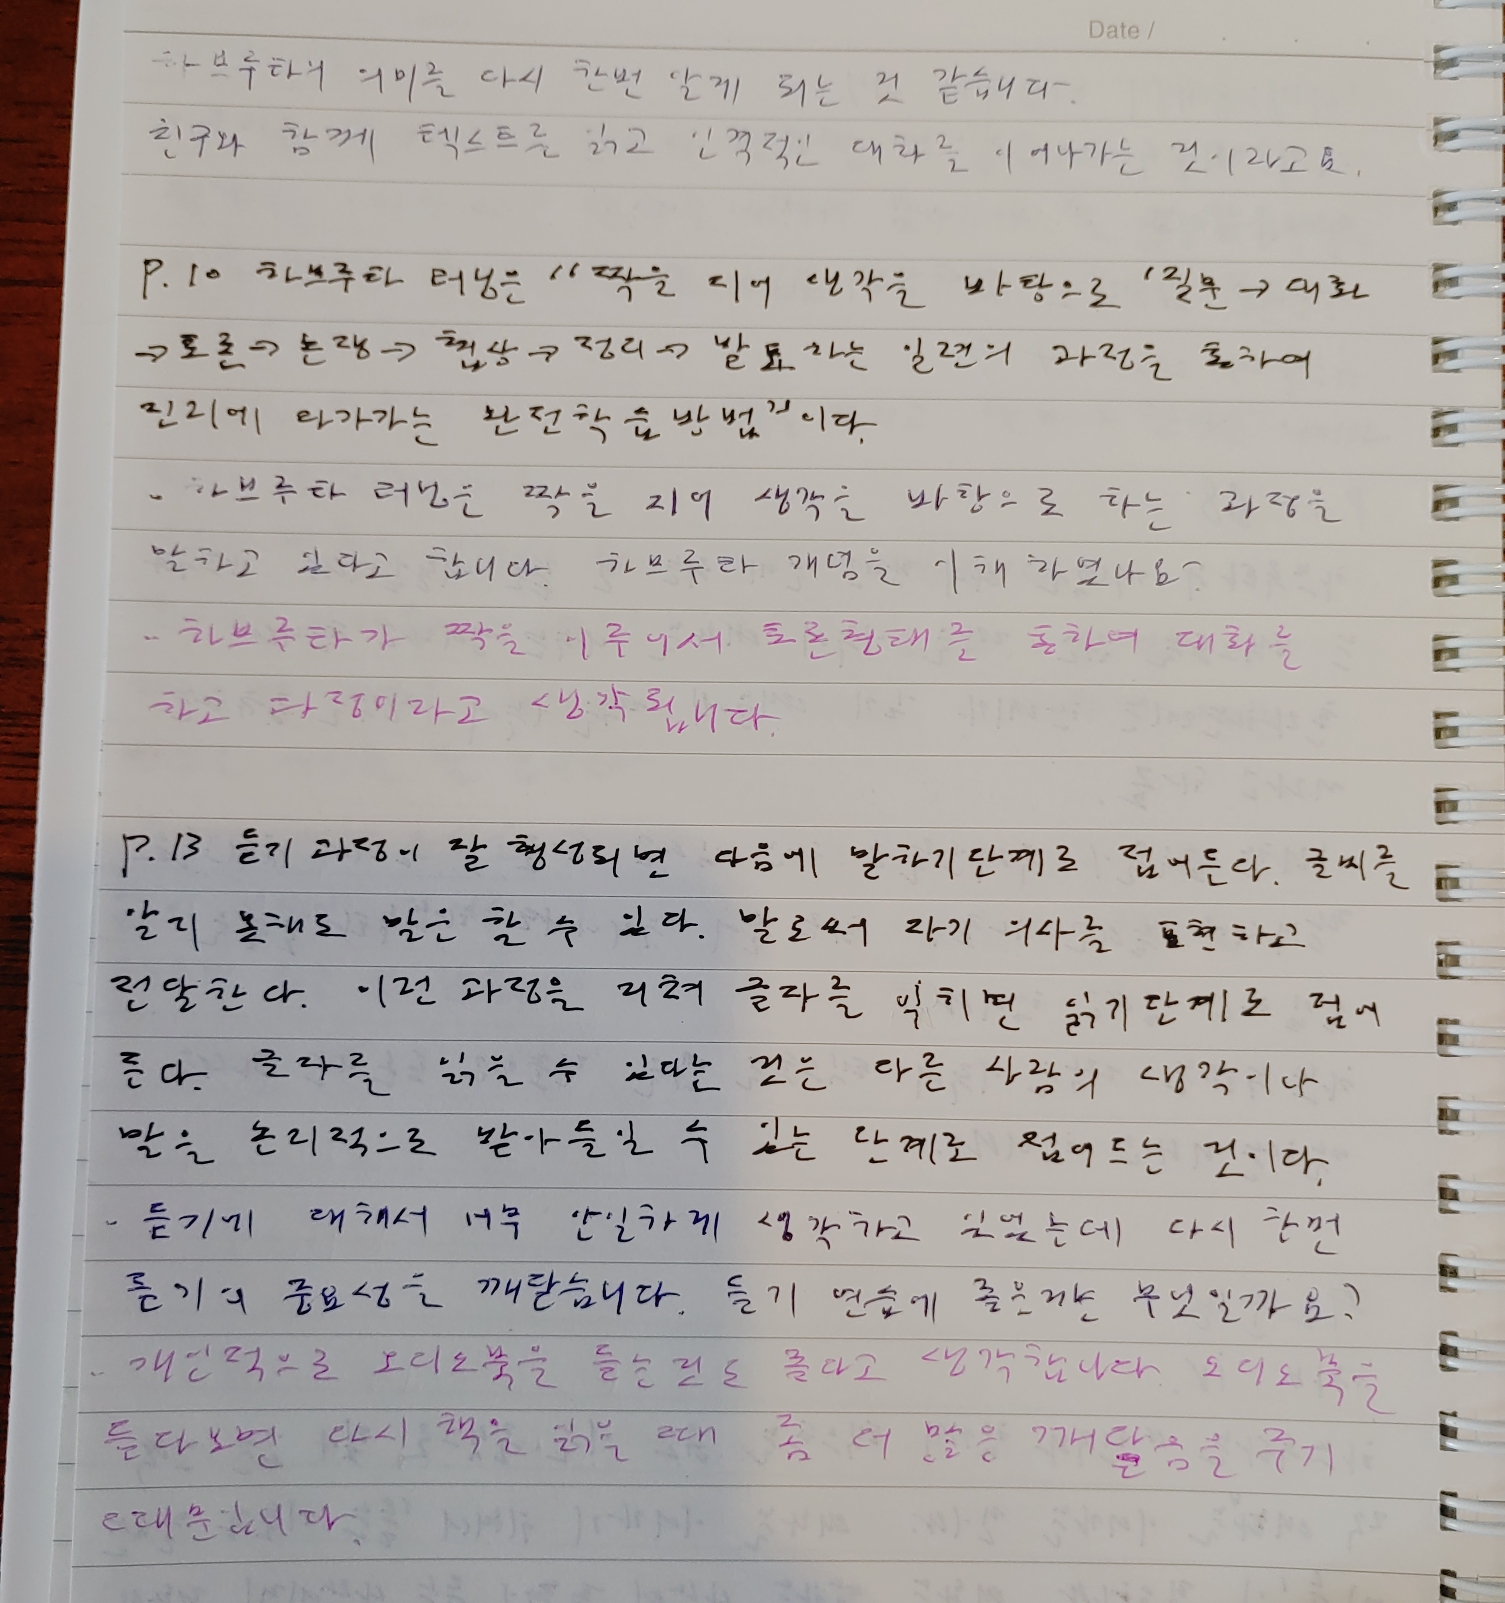 Date /
하브루타의 의미를 다시 한번 알게 되는 것 같습니다.
친구와 함께 텍스트를 읽고 인격적인 대화를 이어나가는 것이라고요.
P.10 하브루타 러닝은 “짝을 지어 생각을 바탕으로 '질문→대화
→토론→논쟁→협상→정리→발표하는 일련의 과정을 통하여
진리에 다가가는 완전학습방법”이다.
- 하브루타 러닝은 짝을 지어 생각을 바탕으로 하는 과정을
말하고 있다고 합니다. 하브루타 개념을 이해하였나요?
- 하브루타가 짝을 이루어서 토론형태를 통하여 대화를
하고 과정이라고 생각됩니다.
P.13 듣기 과정이 잘 형성되면 다음에 말하기단계로 접어든다. 글씨를
알지 못해도 말은 할 수 있다. 말로써 자기 의사를 표현하고
전달한다. 이런 과정을 거쳐 글자를 익히면 읽기단계로 접어
든다. 글자를 읽을 수 있다는 것은 다른 사람의 생각이나
말을 논리적으로 받아들일 수 있는 단계로 접어드는 것이다.
- 듣기에 대해서 너무 안일하게 생각하고 있었는데 다시 한번
듣기의 중요성을 깨닫습니다. 듣기 연습에 좋은 것은 무엇일까요?
- 개인적으로 오디오북을 듣는것도 좋다고 생각합니다. 오디오북을
듣다보면 다시 책을 읽을 때 좀 더 많은 깨달음을 주기
때문입니다.